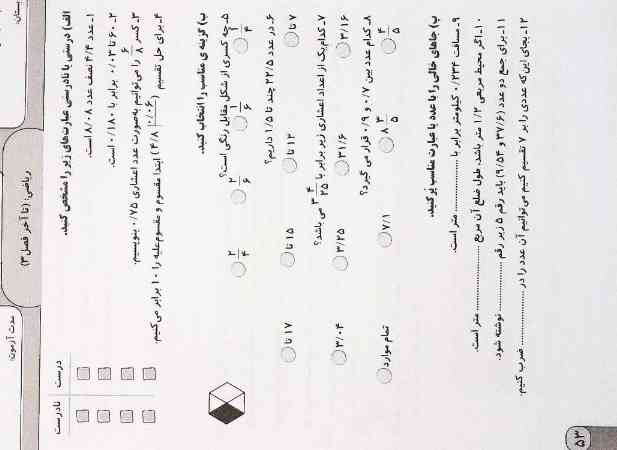 بستان:
مدت آزمون:
ریاضی: (تا آخر فصل ۳)
الف) درستی یا نادرستی عبارت‌های زیر را مشخص کنید.
درست نادرست
۱- عدد ۴/۴ نصف عدد ۸/۰۸ است.
۲- ۶۰ تا ۰/۰۳ برابر با ۰/۱۸۰ است.
۳- کسر ۶/۸ را می‌توانیم به‌صورت عدد اعشاری ۰/۷۵ بنویسیم.
۴- برای حل تقسیم (۴/۸ ۰/۰۶) ابتدا مقسوم و مقسوم‌علیه را ۱۰ برابر می‌کنیم.
ب) گزینه‌ی مناسب را انتخاب کنید.
۵- چه کسری از شکل مقابل رنگی است؟
۱/۴ ۱/۶ ۲/۶ ۲/۴
۶- در عدد ۲۲/۵ چند تا ۱/۵ داریم؟
۷ تا ۱۲ تا ۱۵ تا ۱۷ تا
۷- کدام‌یک از اعداد اعشاری زیر برابر با ۳ ۴/۲۵ می باشد؟
۳/۱۶ ۳۱/۶ ۳/۲۵ ۳/۰۴
۸- کدام عدد بین ۰/۷ و ۰/۹ قرار می گیرد؟
۴/۵ ۸ ۳/۵ ۷/۱ تمام موارد
پ) جاهای خالی را با عدد یا عبارت مناسب پر کنید.
۹- مسافت ۰/۲۳۴ کیلومتر برابر با ............ متر است.
۱۰- اگر محیط مربعی ۱/۲ متر باشد، طول ضلع آن مربع ............ متر است.
۱۱- برای جمع دو عدد (۳۷/۶ و ۹/۵۴) باید رقم ۵ زیر رقم ............ نوشته شود.
۱۲- بجای این‌که عددی را بر ۷ تقسیم کنیم می‌توانیم آن عدد را در ............ ضرب کنیم.
۵۳